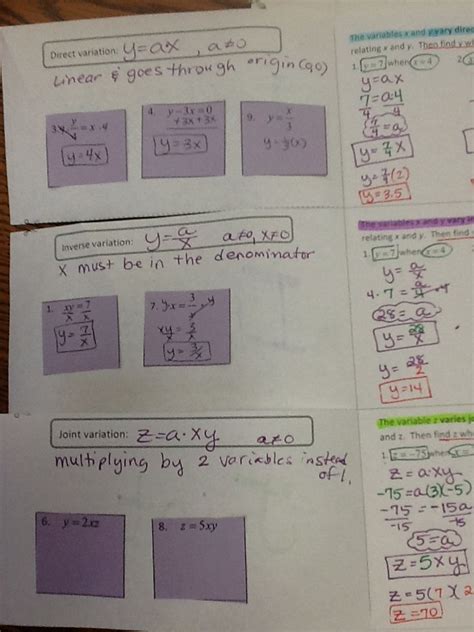 Direct variation: y=ax , a≠0
Linear & goes through origin (0,0)
3. 4·y/4 = x·4
y=4x
4. y−3x=0
+3x +3x
y=3x
9. y= x/3
y=⅓(x)
The variables x and y vary direc
relating x and y. Then find y wh
1. y=7 when x=4
y=ax
7=a·4
4 4
7/4=a
y=7/4 x
y=7/4(2)
y=3.5
Inverse variation: y=a/x a≠0, x≠0
x must be in the denominator
1. xy/x=7/x
y=7/x
7. y·x=3
xy/x=3/x
y=3/x
The variables x and y vary
relating x and y. Then find
1. y=7 when x=4
y=a/x
4·7=a/4
28=a
y=28/x
y=28/2
y=14
Joint variation: z=a·xy a≠0
multiplying by 2 variables instead
of 1.
6. y=2xz
8. z=5xy
The variable z varies jo
and z. Then find z wh
1. z=−75 when x=
z=a·xy
−75=a(3)(−5)
−75=−15a
−15 −15
5=a
z=5xy
z=5(7)(2
z=70